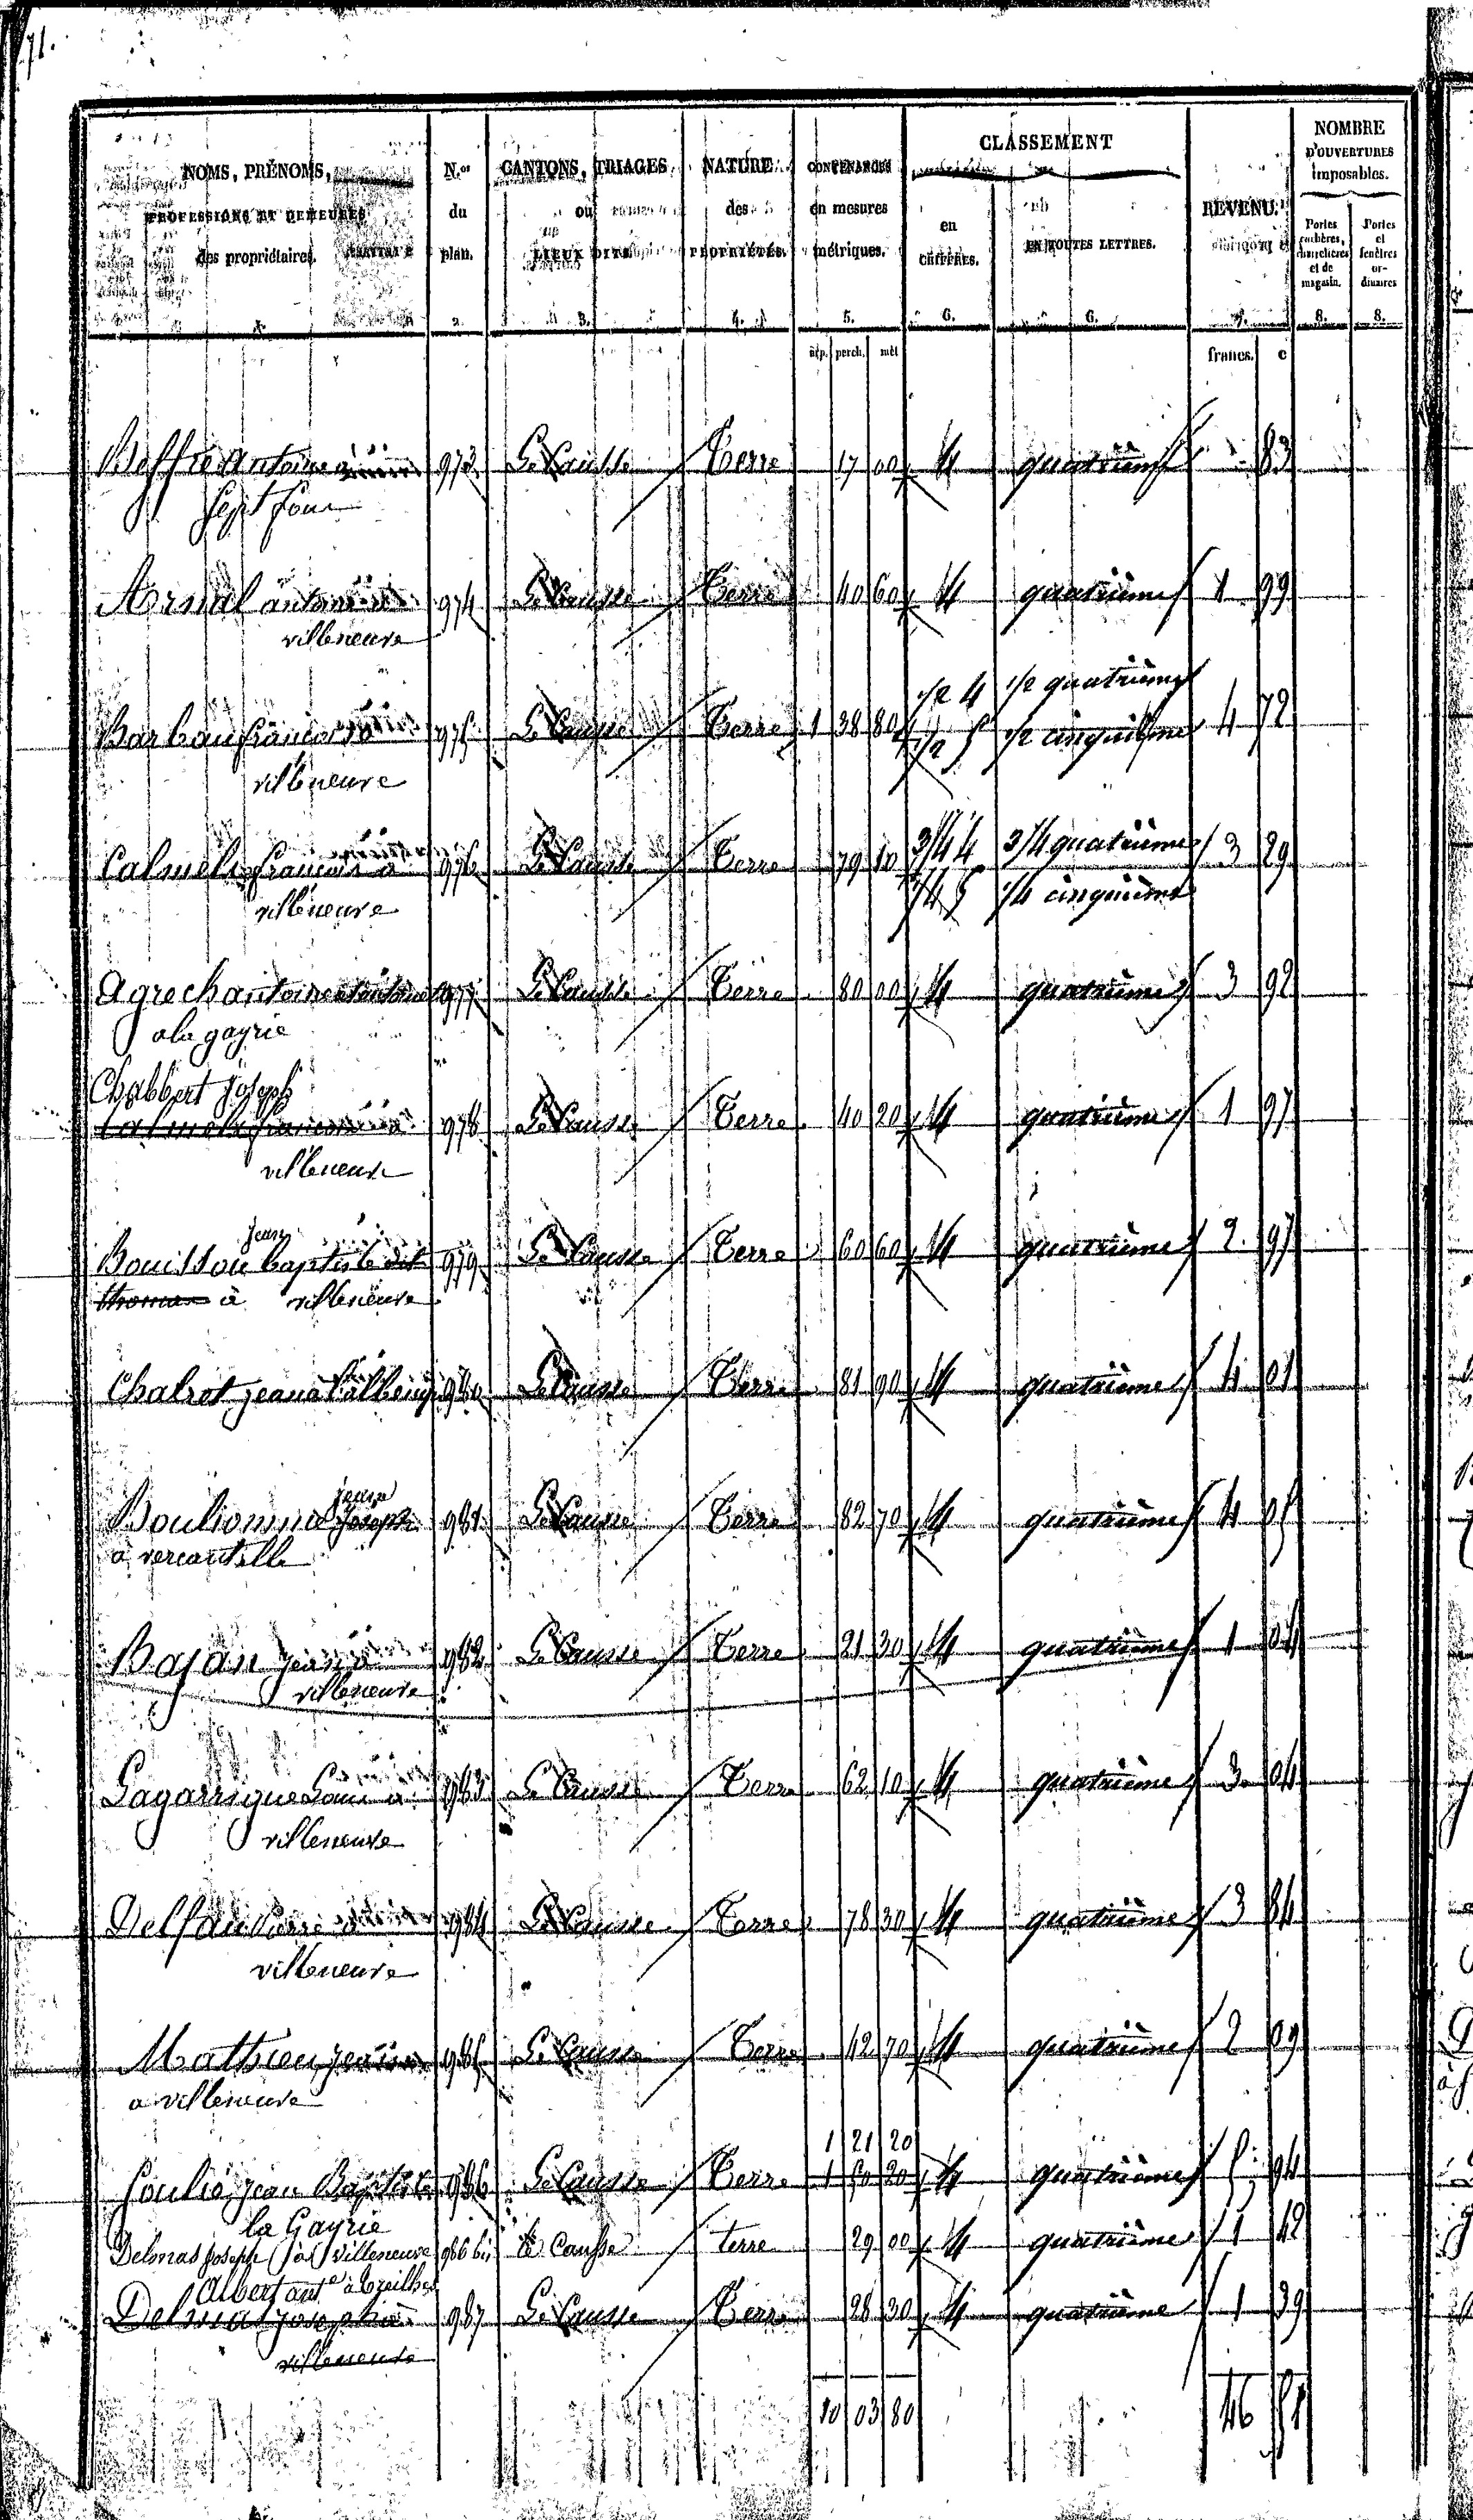 71.
NOMS, PRÉNOMS, PROFESSIONS ET DEMEURES des propriétaires. N.os du plan. CANTONS, TRIAGES ou LIEUX DITS NATURE des PROPRIÉTÉS. CONTENANCES en mesures métriques. CLASSEMENT en CHIFFRES. EN TOUTES LETTRES. REVENU. NOMBRE D'OUVERTURES imposables. Portes cochères, charretières et de magasin. Portes et fenêtres ordinaires
1. 2. 3. 4. 5. 6. 6. 7. 8. 8.
arp. perch. mèt francs. c
Beffre Antoine 973 Le Causse Terre 17 00 4 quatrième 83
Sept fons
Antoine 974 Le Causse Terre 40 60 4 quatrième 1 99
villeneuve
1/2 4 1/2 quatrième
Barbau françois 975 Le Causse Terre 1 38 80 1/2 5 1/2 cinquième 4 72
villeneuve
Calmels françois a 976 Le Causse Terre 79 10 3/4 4 3/4 quatrième 3 29
villeneuve 1/4 5 1/4 cinquième
Agrech antoine 977 Le Causse Terre 80 00 4 quatrième 3 92
a la gayrie
Chabbert Joseph
Calmels françois a 978 Le Causse Terre 40 20 4 quatrième 1 97
villeneuve
jean
Bouissou baptiste dit 979 Le Causse Terre 60 60 4 quatrième 2 97
thomas à villeneuve
Chalret jean a 980 Le Causse Terre 81 90 4 quatrième 4 01
jean
joseph 981 Le Causse Terre 82 70 4 quatrième 4 05
à vercantelle
Bajan jean a 982 Le Causse Terre 21 30 4 quatrième 1 04
villeneuve
Lagarrigue Louis a 983 Le Causse Terre 62 10 4 quatrième 3 04
villeneuve
Delfau Pierre a 984 Le Causse Terre 78 30 4 quatrième 3 84
villeneuve
Mathieu jean 985 Le Causse Terre 42 70 4 quatrième 2 09
a villeneuve
1 21 20
Soulié jean Baptiste 986 Le Causse Terre 1 50 20 4 quatrième 5 94
la Gayrie
Delmas Joseph à villeneuve 986 bis le Causse terre 29 00 4 quatrième 1 42
Albert ant.e à treilhes
Delmas joseph a 987 Le Causse Terre 28 30 4 quatrième 1 39
villeneuve
10 03 80 46 51